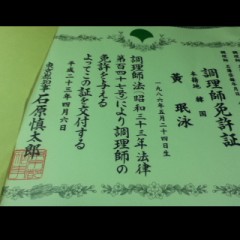 調理師免許証
本籍地 韓国
黃 珉泳
一九八六年五月二十四日生
調理師法(昭和三十三年法律
第百四十七号)により調理師の
免許を与える
よってこの証を交付する
平成二十三年四月六日
東京都知事 石原慎太郎